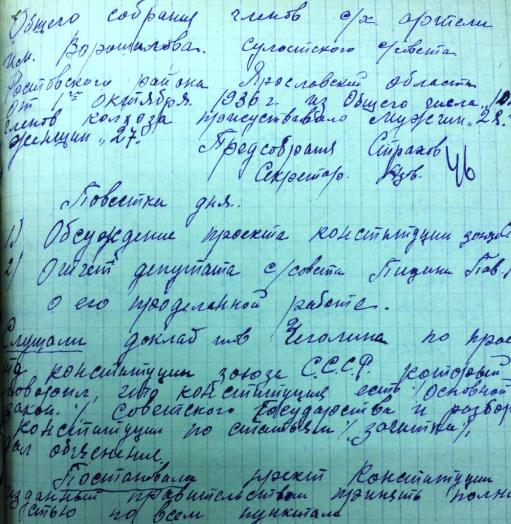 Общего собрания членов с/х артели
им. Ворошилова. Сулостского с/совета
Ростовского района Ярославской области
от 1го октября 1936 г. из общего числа
членов колхоза присуствовало мужчин "28."
женщин "27."
Предсобрания Страхов
Секретар.
46
Повестка дня.
1) Обсуждение проекта конституции
2) Отчет депутата с/совета
о его проделанной работе.
Слушали доклад тов Чеголина по
конституции союза С.С.С.Р. который
говорил, что конституция есть основной
закон. Советского государства и
конституции по статьям
дал объяснения,
Постановили проект Конституции
изданный правительством принять
по всем пунктам